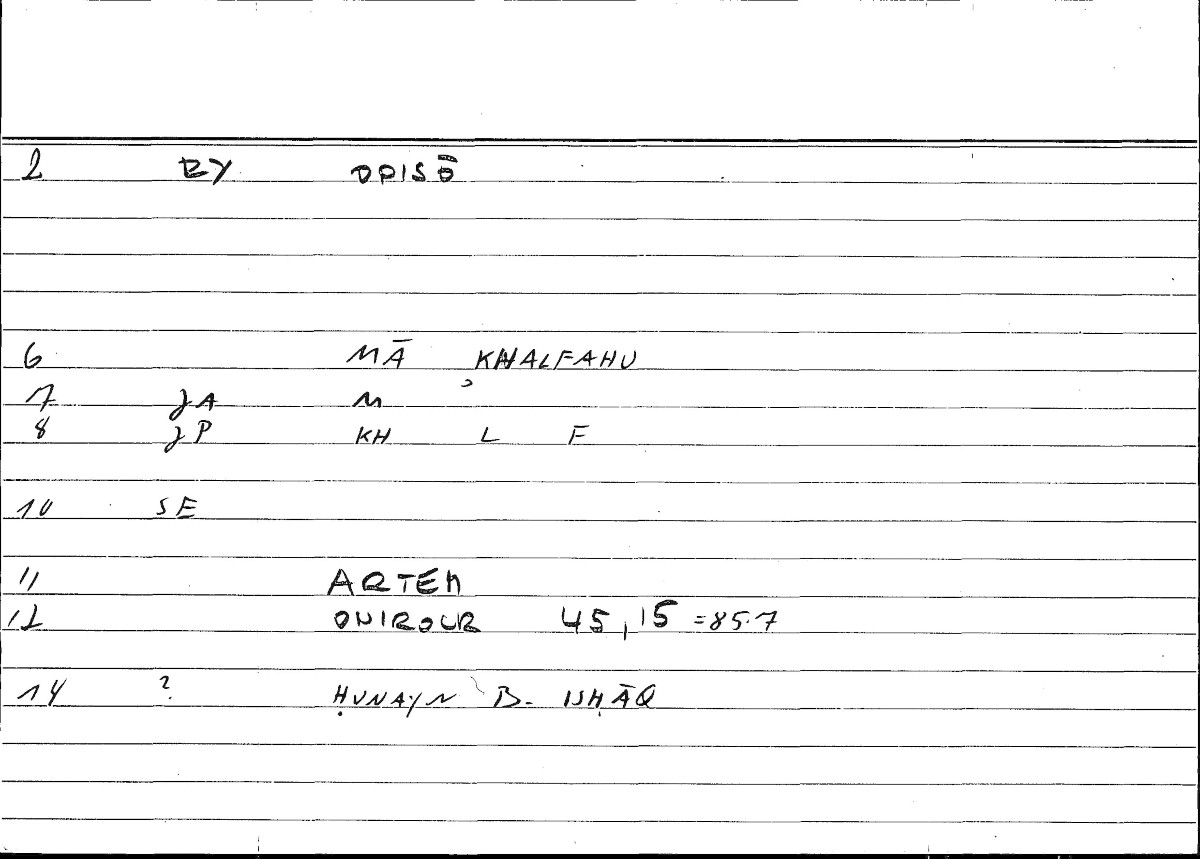 2 RY OPISŌ
6 MĀ KHALFAHU
7 JA M
8 JP KH L F
10 SE
11 ARTEM
12 ONIROCR 45,15 =85.7
14 ? ḤUNAYN B. ISḤĀQ